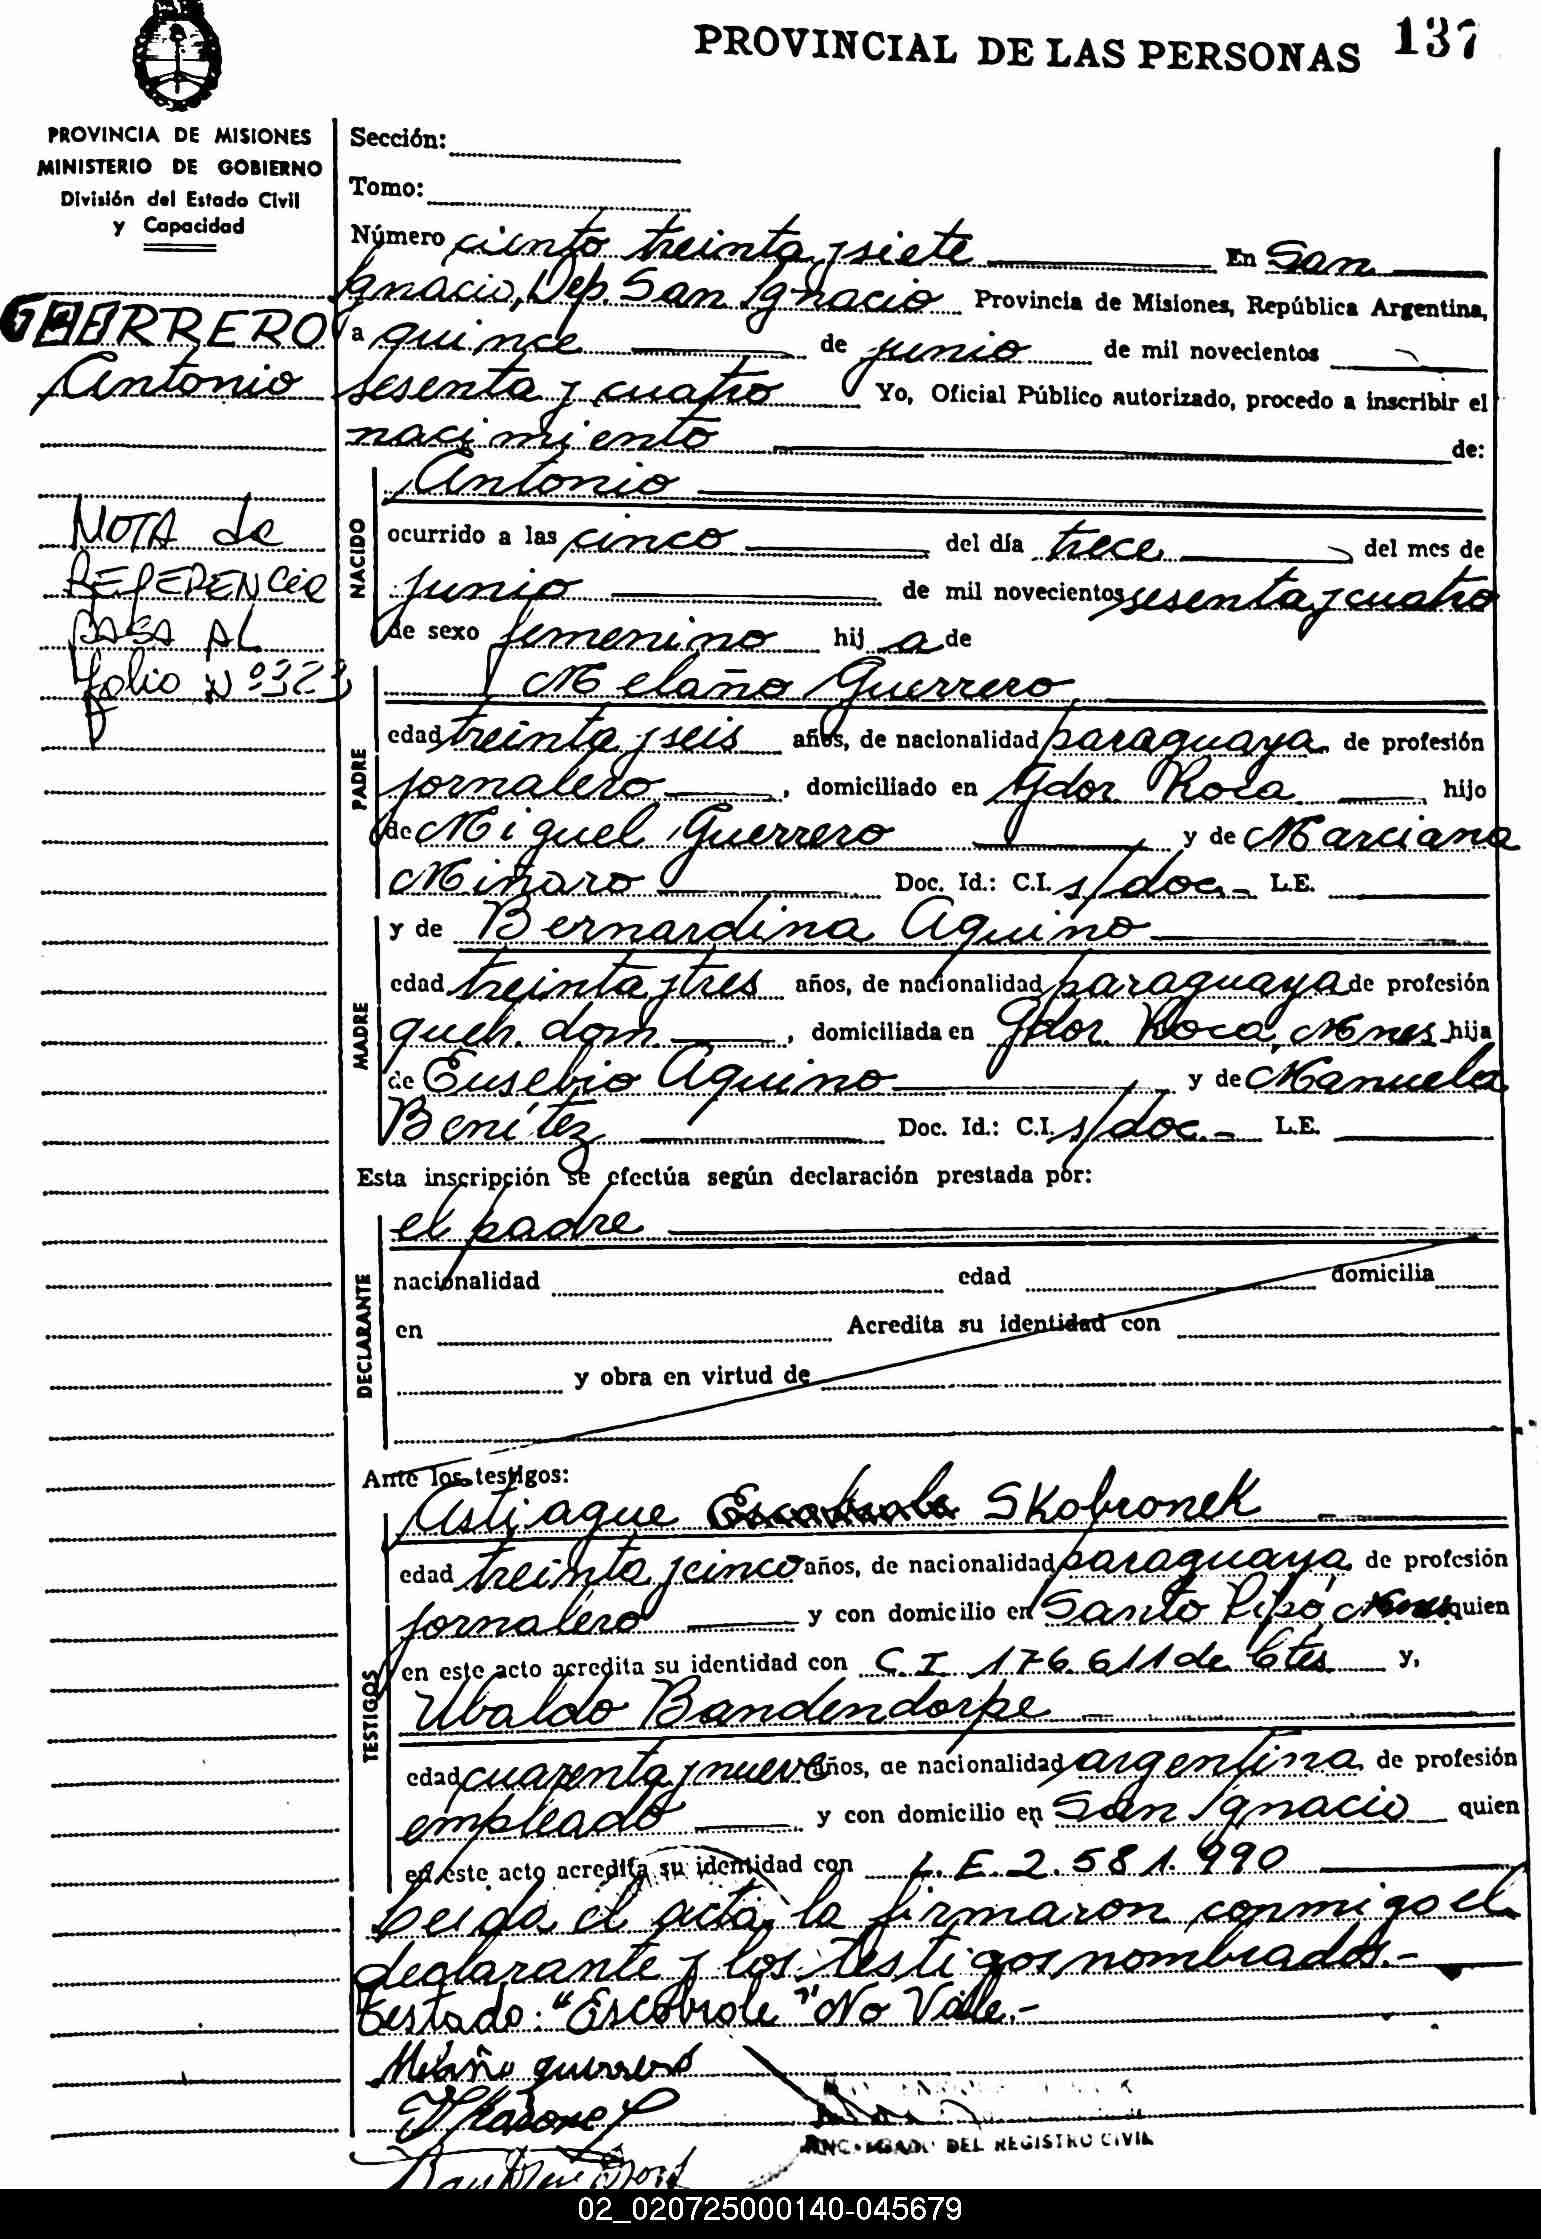 PROVINCIAL DE LAS PERSONAS 137
PROVINCIA DE MISIONES
MINISTERIO DE GOBIERNO
División del Estado Civil
y Capacidad
GUERRERO
Antonio
NOTA de
REFERENCIA
PASA AL
folio Nº 323
Sección:
Tomo:
Número ciento treinta y siete En San
Ignacio, Dep. San Ignacio Provincia de Misiones, República Argentina,
a quince de junio de mil novecientos
sesenta y cuatro Yo, Oficial Público autorizado, procedo a inscribir el
nacimiento de:
NACIDO
Antonio
ocurrido a las cinco del día trece del mes de
junio de mil novecientos sesenta y cuatro
de sexo femenino hij a de
PADRE
Melaño Guerrero
edad treinta y seis años, de nacionalidad paraguaya de profesión
jornalero, domiciliado en Gdor Roca hijo
de Miguel Guerrero y de Marciana
Miñaro Doc. Id.: C.I. s/doc.- L.E.
MADRE
y de Bernardina Aquino
edad treinta y tres años, de nacionalidad paraguaya de profesión
queh. dom., domiciliada en Gdor. Roca, Mnes hija
de Eusebio Aquino y de Manuela
Benítez Doc. Id.: C.I. s/doc.- L.E.
Esta inscripción se efectúa según declaración prestada por:
DECLARANTE
el padre
nacionalidad edad domicilia
en Acredita su identidad con
y obra en virtud de
Ante los testigos:
TESTIGOS
Astiague Skobronek
edad treinta y cinco años, de nacionalidad paraguaya de profesión
jornalero y con domicilio en Santo Pipó quien
en este acto acredita su identidad con C.I. 176.611 de Ctes y,
Ubaldo Bandendorpe
edad cuarenta y nueve años, de nacionalidad argentina de profesión
empleado y con domicilio en San Ignacio quien
en este acto acredita su identidad con L.E. 2.581.990
Leída el acta, la firmaron conmigo el
declarante y los testigos nombrados.-
Testado: "Escobrole" No Vale.-
Melaño guerrero
DEL REGISTRO CIVIL
02_020725000140-045679